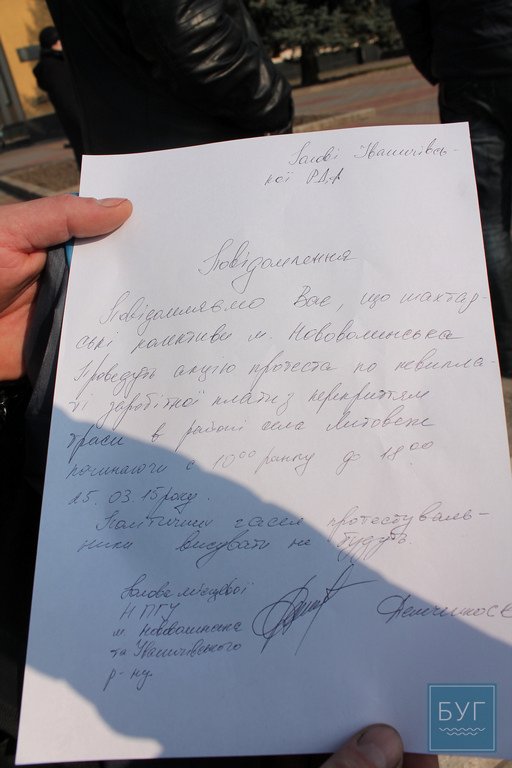 Голові Іваничівсь-
кої РДА
Повідомлення
Повідомляємо Вас, що шахтар-
ські колективи м. Нововолинська
проведуть акцію протеста по невипла-
ті заробітної плати з перекриттям
траси в районі села Литовеж
починаючи с 10⁰⁰ ранку до 18⁰⁰
25.03.15 року.
Політичних гасел протестуваль-
ники висувати не будуть.
Голова місцевої
НПГУ
м. Нововолинська
та Іваничівського
р-ну.
БУГ